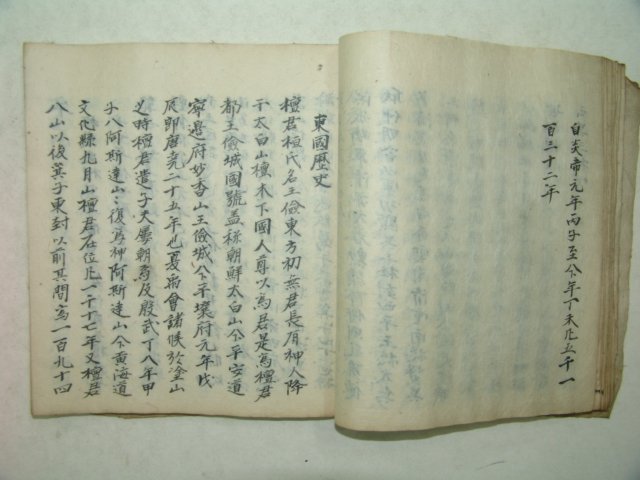 自炎帝元年丙子至今年丁未凡五千一
百三十二年
東國歷史
檀君桓氏名王儉東方初無君長有神人降
于太白山檀木下國人尊以為君是為檀君
都王儉城國號盖稱朝鮮太白山今平安道
寧邊府妙香山王儉城今平壤府元年戊
辰即唐堯二十五年也夏禹會諸侯於塗山
之時檀君遣子夫婁朝焉及殷武丁八年甲
子入阿斯達山〻復為神阿斯達山今黃海道
文化縣九月山檀君在位凡一千十七年又檀君
入山以後箕子東封以前其間為一百九十四